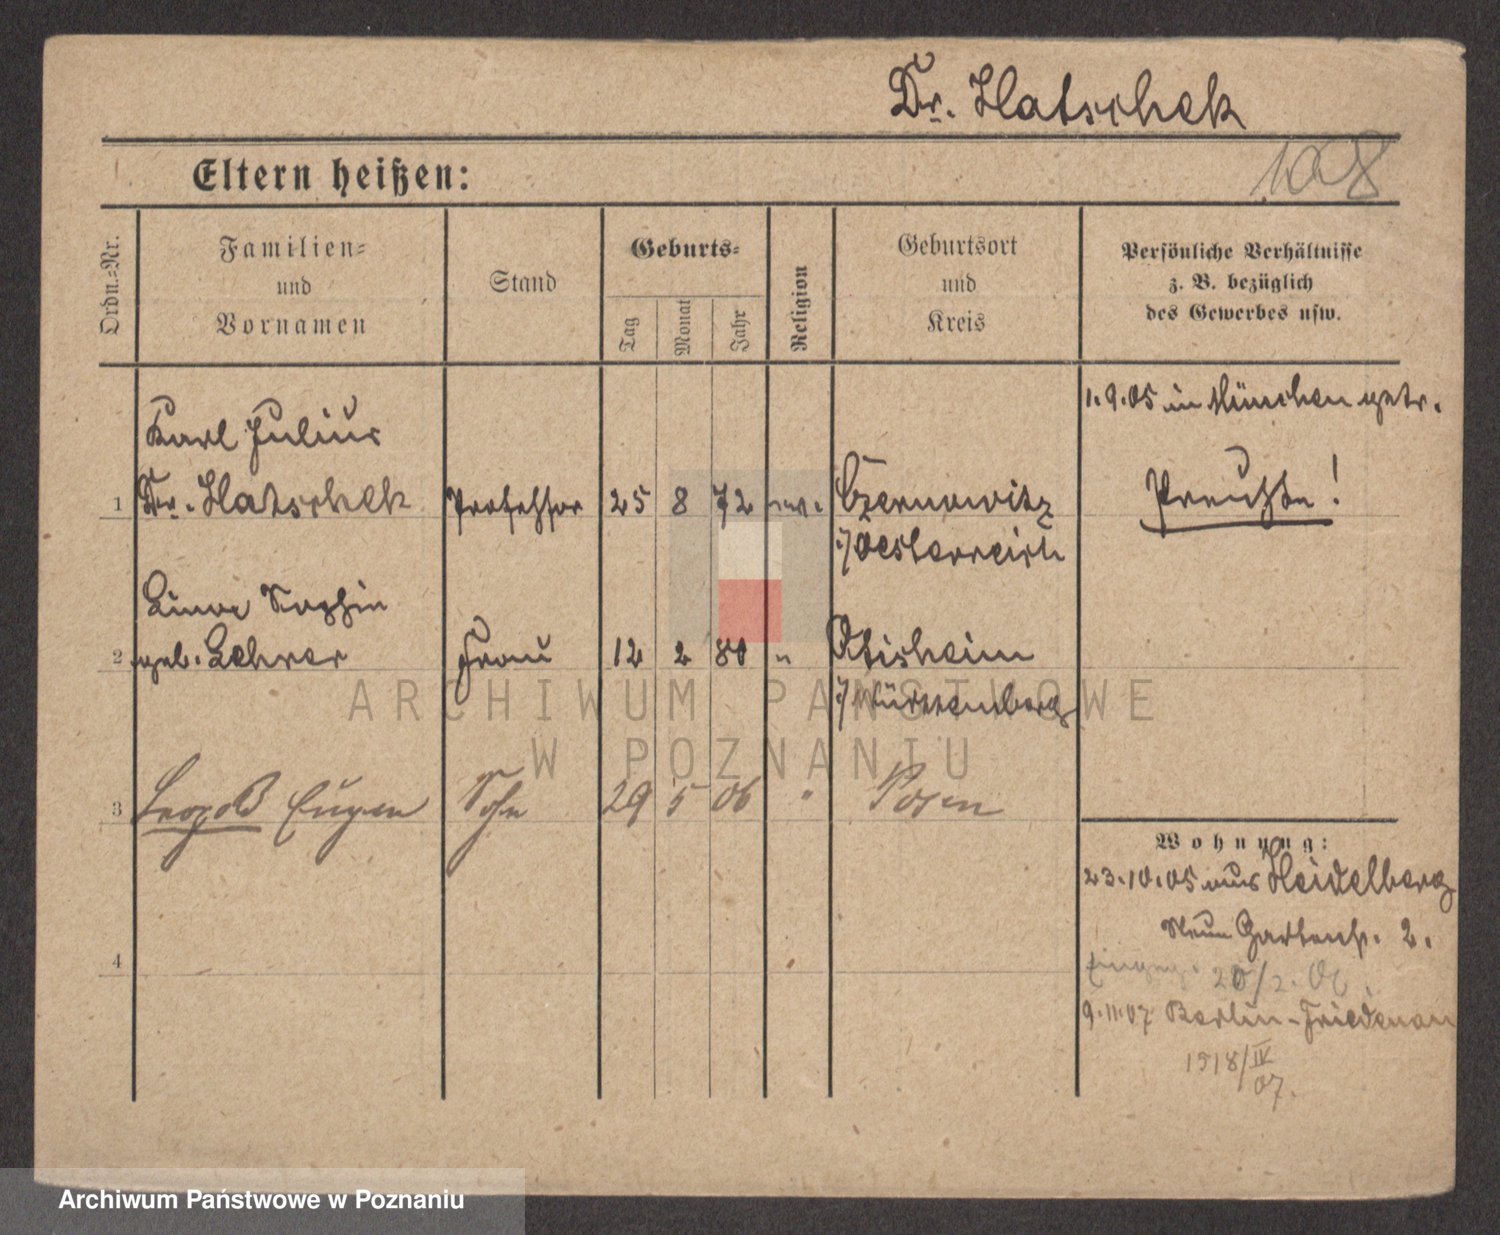 Dr. Hatschek
108
Eltern heißen:
Ordn.-Nr.
Familien-
und
Vornamen
Stand
Geburts-
Tag
Monat
Jahr
Religion
Geburtsort
und
Kreis
Persönliche Verhältnisse
z. B. bezüglich
des Gewerbes usw.
1.9.05 in München getr.
Karl Julius
1 Dr. Hatschek Professor 25 8 72 ev. Czernowitz
i/Oesterreich
Preuße!
Sophie
2 geb. Lehrer Frau 12 2 80 " Ötisheim
i/Württemberg
3 Leopold Eugen Sohn 29 5 06 " Posen
4
Wohnung:
23.10.05 aus Heidelberg
Neue Gartenstr. 2.
20/2. 06.
9.11.07 Berlin-Friedenau
1518/IV
07.
ARCHIWUM PAŃSTWOWE
W POZNANIU
Archiwum Państwowe w Poznaniu